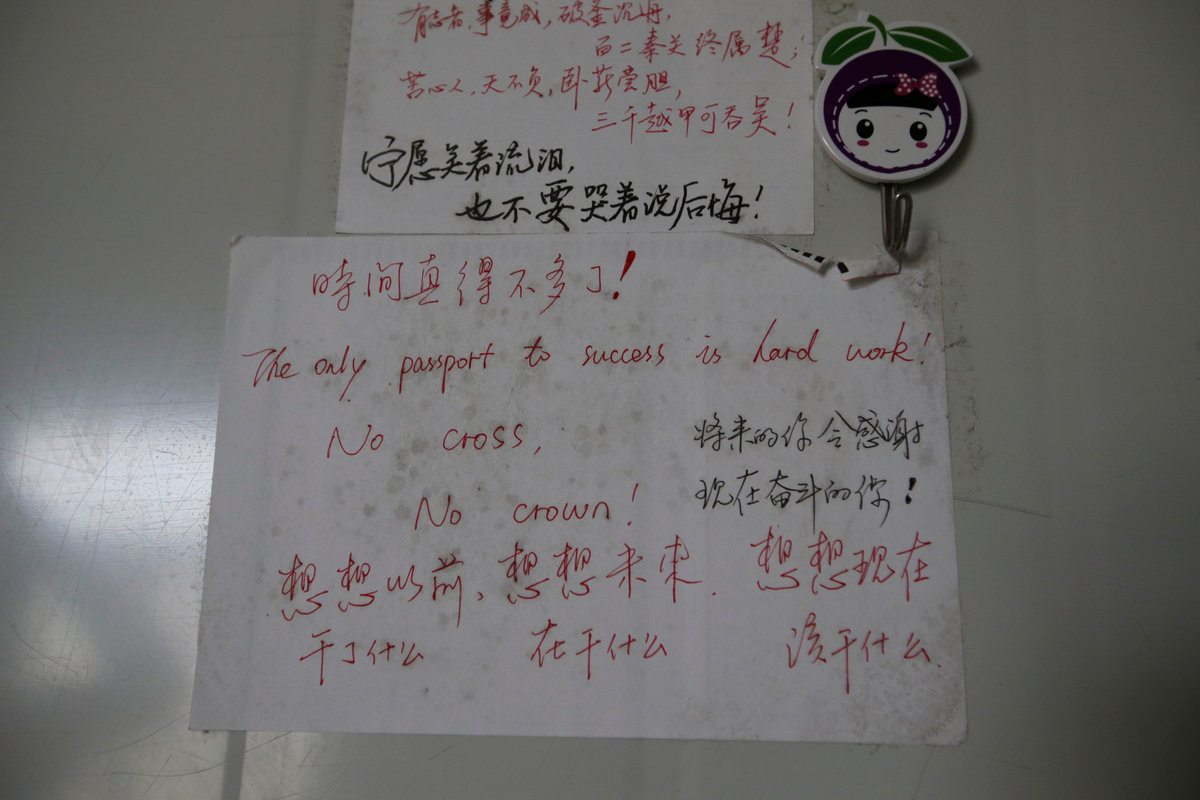 有志者,事竟成,破釜沉舟,
百二秦关终属楚;
苦心人,天不负,卧薪尝胆,
三千越甲可吞吴!
宁愿笑着流泪,
也不要哭着说后悔!
時间真得不多了!
The only passport to success is hard work!
No cross,
No crown!
将来的你会感谢
现在奋斗的你!
想想以前、想想未来. 想想现在
干了什么 在干什么 该干什么.